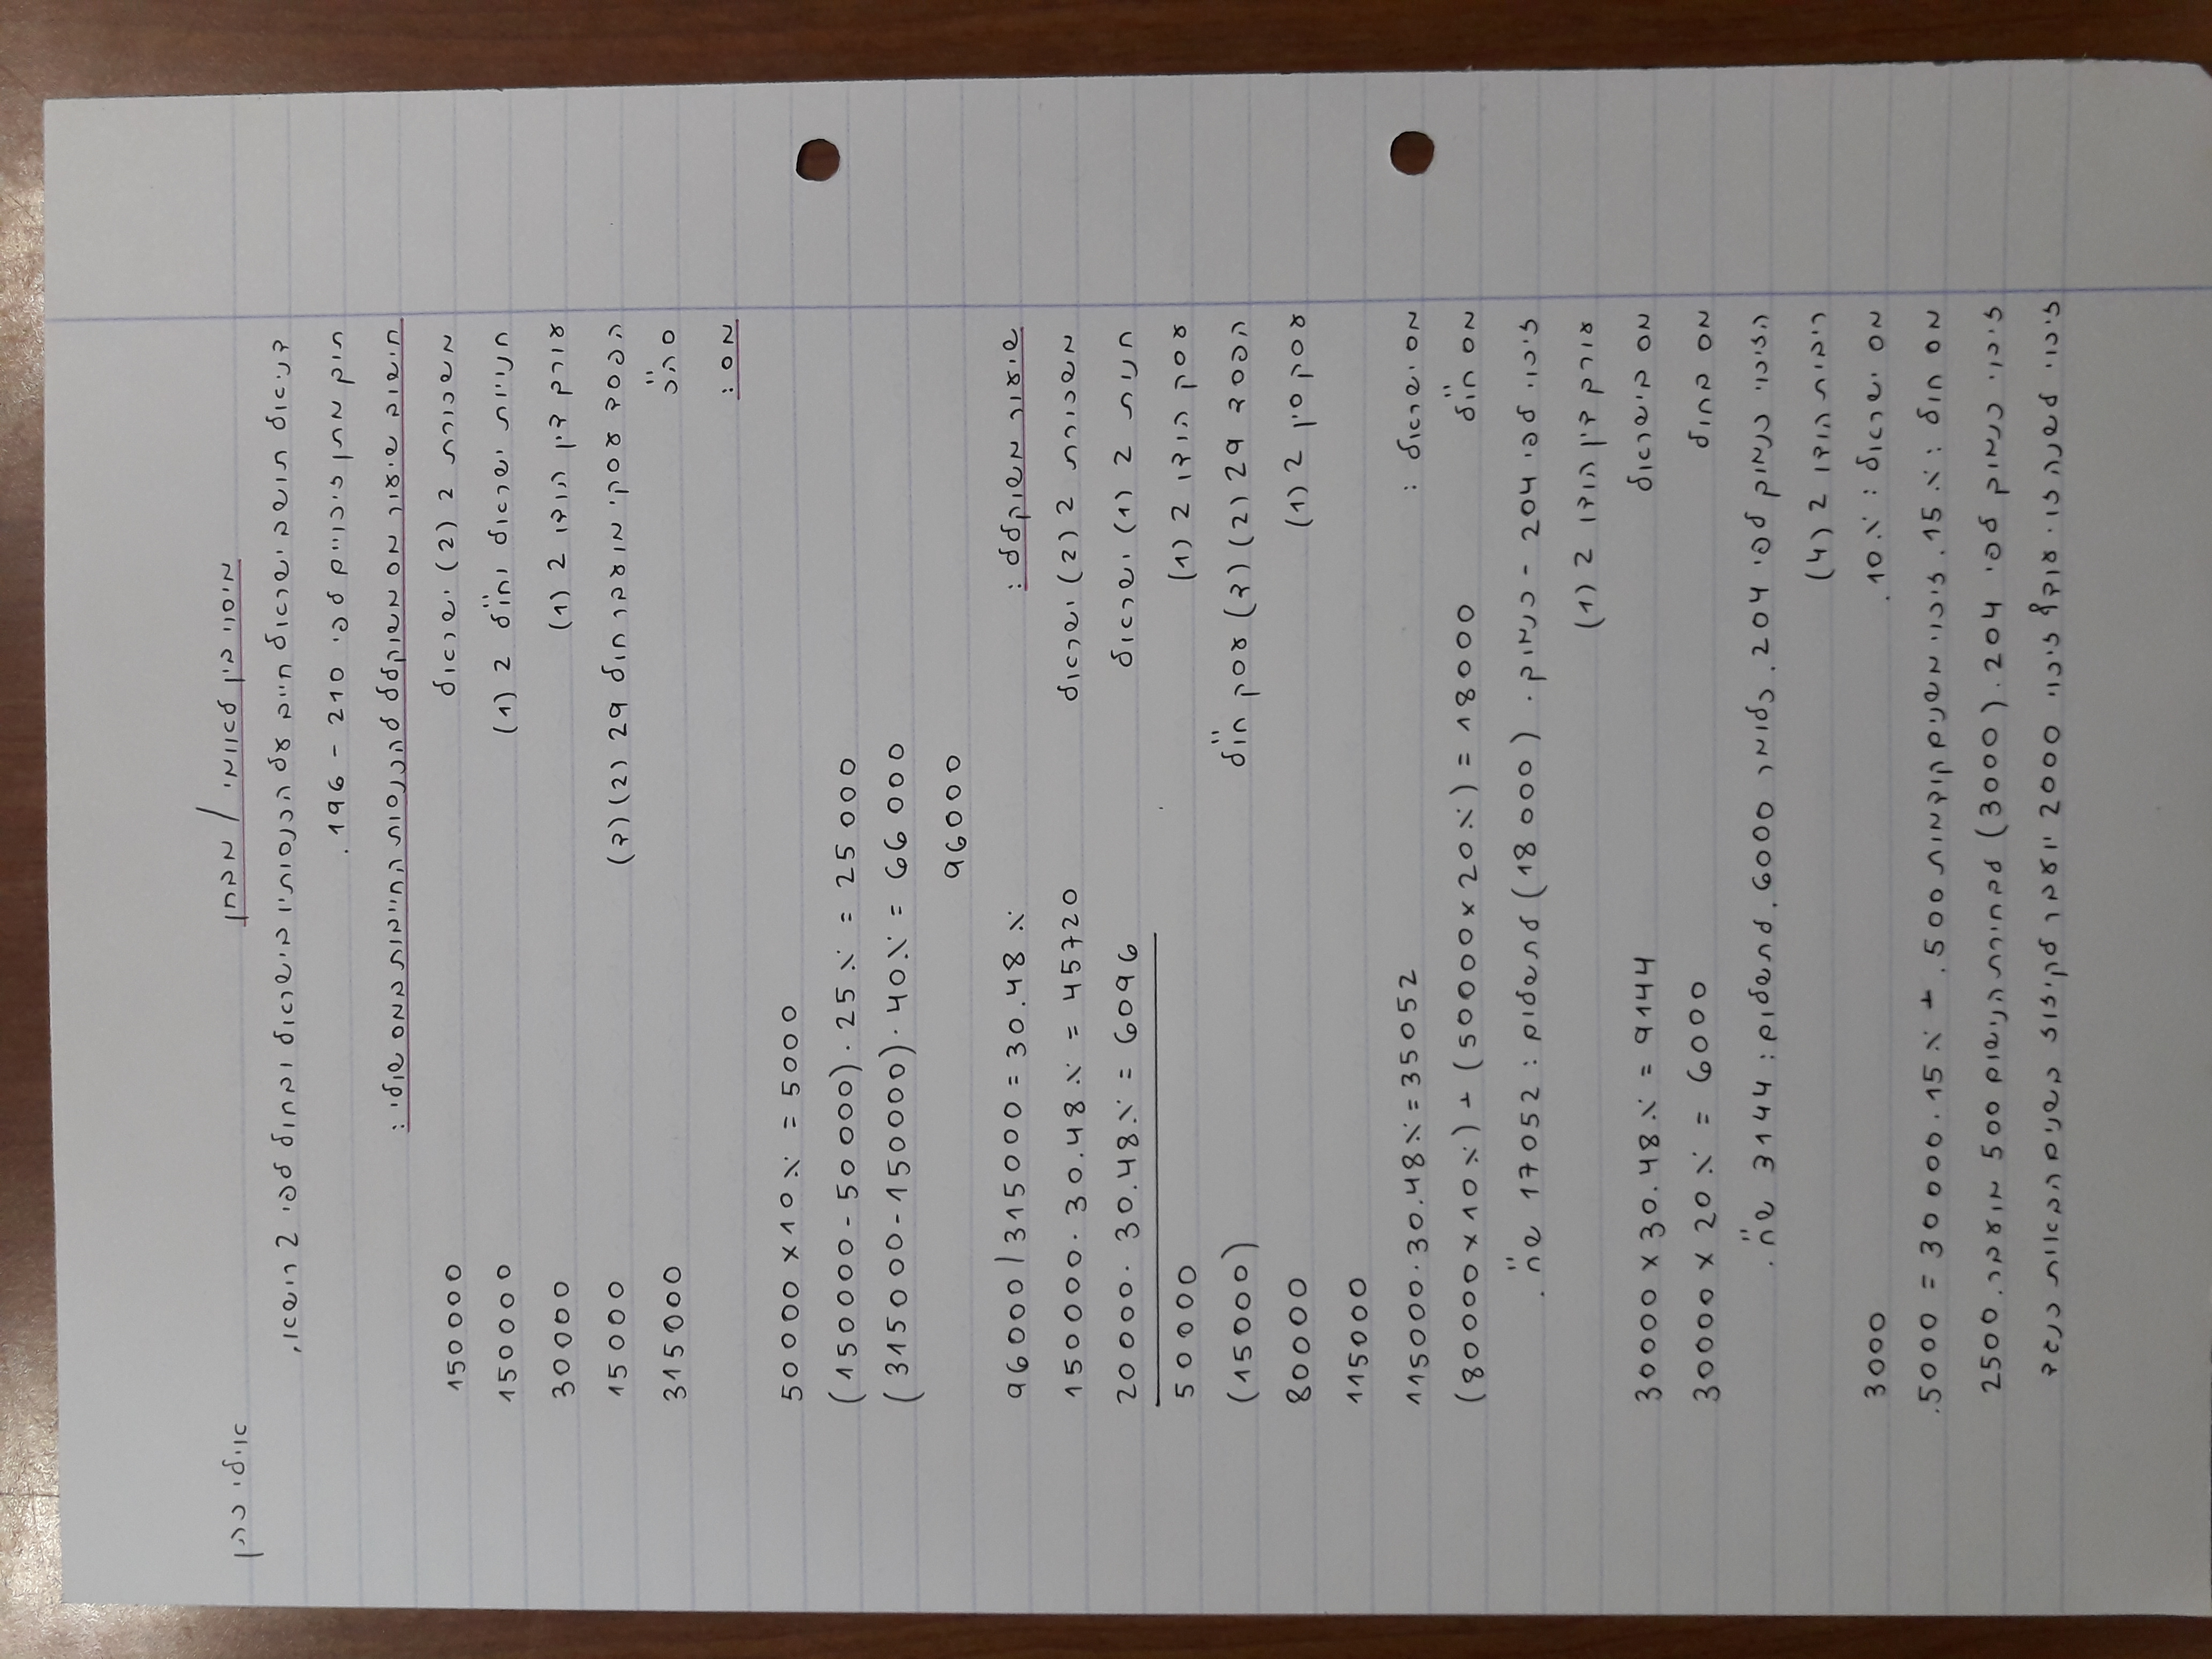 מיסוי בין לאומי / מבחן אוולי כהן
דניאול תושב ישראול חייב על הכנסותיו בישראול ובחול לפי 2 רישא,
תוק מתן זיכויים לפי 196 - 210.
חישוב שיעור מס משוקלל להכנסות החייבות במס שולי :
משכורת 2 (2) ישראול 150000
חנויות ישראול וחול 2 (1) 150000
עורק דין הודו 2 (1) 30000
הפסד עסקי מועבר חול 29 (2)(ד) 15000
סהכ 315000
מס :
50000 x 10% = 5000
(150000 - 50000) . 25% = 25000
(315000 - 150000) . 40% = 66000
96000
שיעור משוקלל : 96000 / 315000 = 30.48%
משכורת 2 (2) ישראול 150000 . 30.48% = 45720
חנות 2 (1) ישראול 20000 . 30.48% = 6096
עסק הודו 2 (1) 50000
הפסד 29 (2)(ד) עסק חול (15000)
עסק סין 2 (1) 80000
115000
מס ישראול : 115000 . 30.48% = 35052
מס חול (80000 x 10%) + (50000 x 20%) = 18000
זיכוי לפי 204 - כנמוק . (18000) לתשלום : 17052 שח.
עורק דין הודו 2 (1)
מס בישראול 30000 x 30.48% = 9144
מס בחול 30000 x 20% = 6000
הזיכוי כנמוק לפי 204. כלומר 6000. לתשלום : 3144 שח.
ריבית הודו 2 (4)
מס ישראול : 10%. 3000
מס חול : 15%. זיכוי משניק קודמות 500. + 30000.15% = 5000.
זיכוי כנמוק לפי 204. (3000) לבחירת הנישום 500 מועבר. 2500
זיכוי לשנה הבו. עודף זיכוי 2000 יועבר לקיזוז בשנים הבאות כנגד